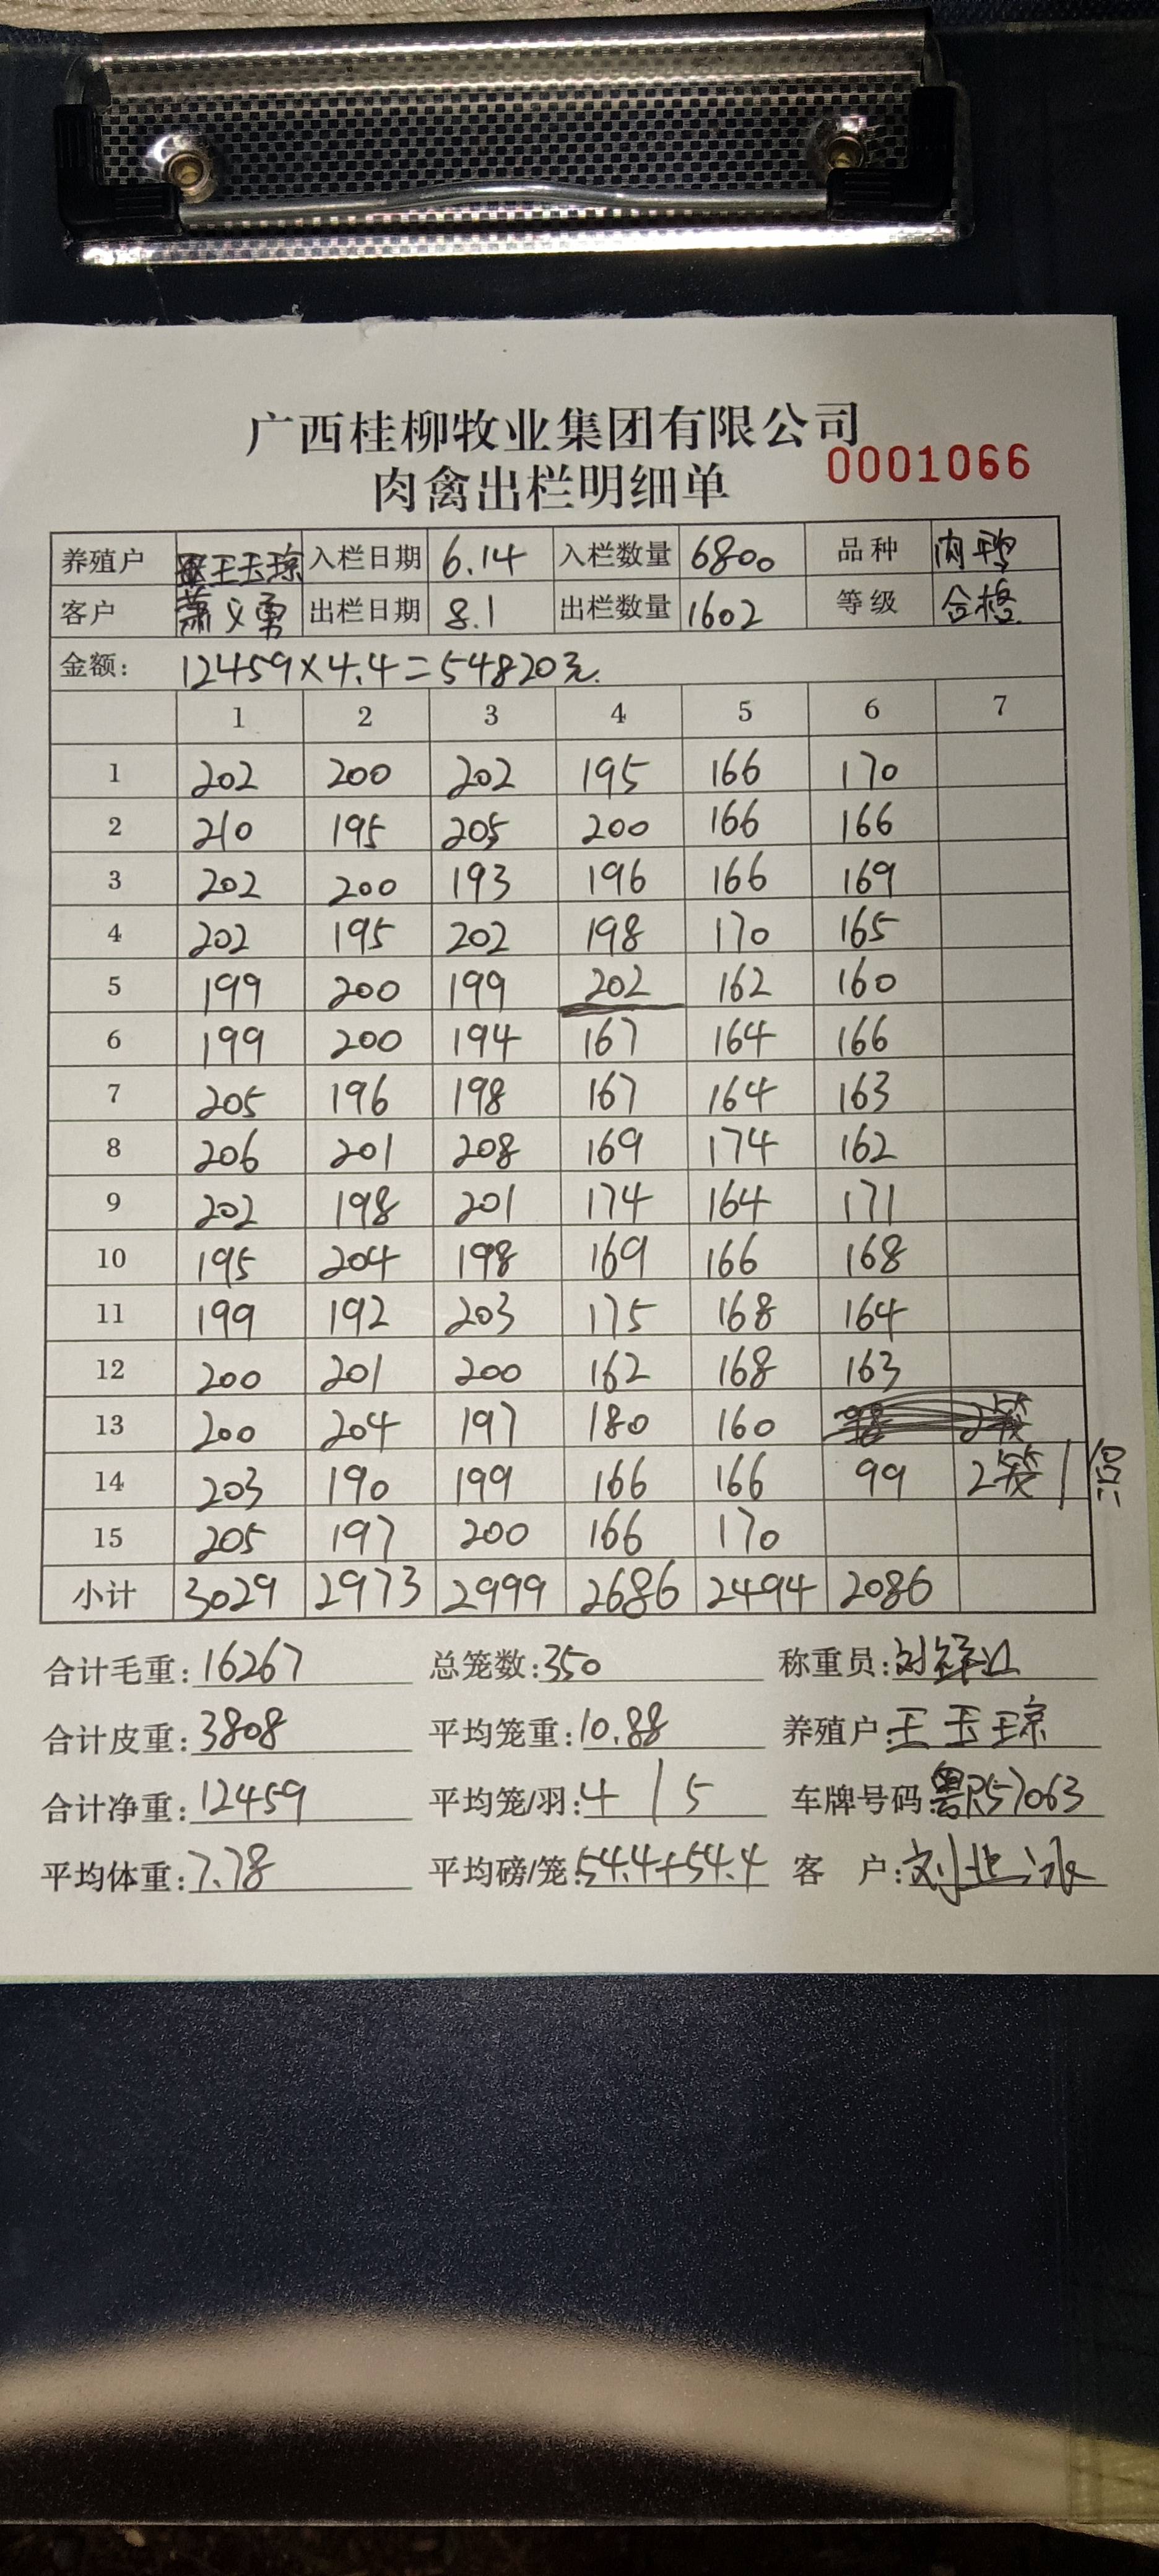 广西桂柳牧业集团有限公司
肉禽出栏明细单 0001066
养殖户 王玉琼 入栏日期 6.14 入栏数量 6800 品种 肉鸭
客户 萧义勇 出栏日期 8.1 出栏数量 1602 等级 合格
金额: 12459×4.4=54820元.
1 2 3 4 5 6 7
1 202 200 202 195 166 170
2 210 195 205 200 166 166
3 202 200 193 196 166 169
4 202 195 202 198 170 165
5 199 200 199 202 162 160
6 199 200 194 167 164 166
7 205 196 198 167 164 163
8 206 201 208 169 174 162
9 202 198 201 174 164 171
10 195 204 198 169 166 168
11 199 192 203 175 168 164
12 200 201 200 162 168 163
13 200 204 197 180 160
14 203 190 199 166 166 99 2笼
15 205 197 200 166 170
小计 3029 2973 2999 2686 2494 2086
合计毛重:16267 总笼数:350 称重员:刘
合计皮重:3808 平均笼重:10.88 养殖户:王玉琼
合计净重:12459 平均笼/羽:4 / 5 车牌号码:粤R57063
平均体重:7.78 平均磅/笼:54.4+54.4 客 户:刘